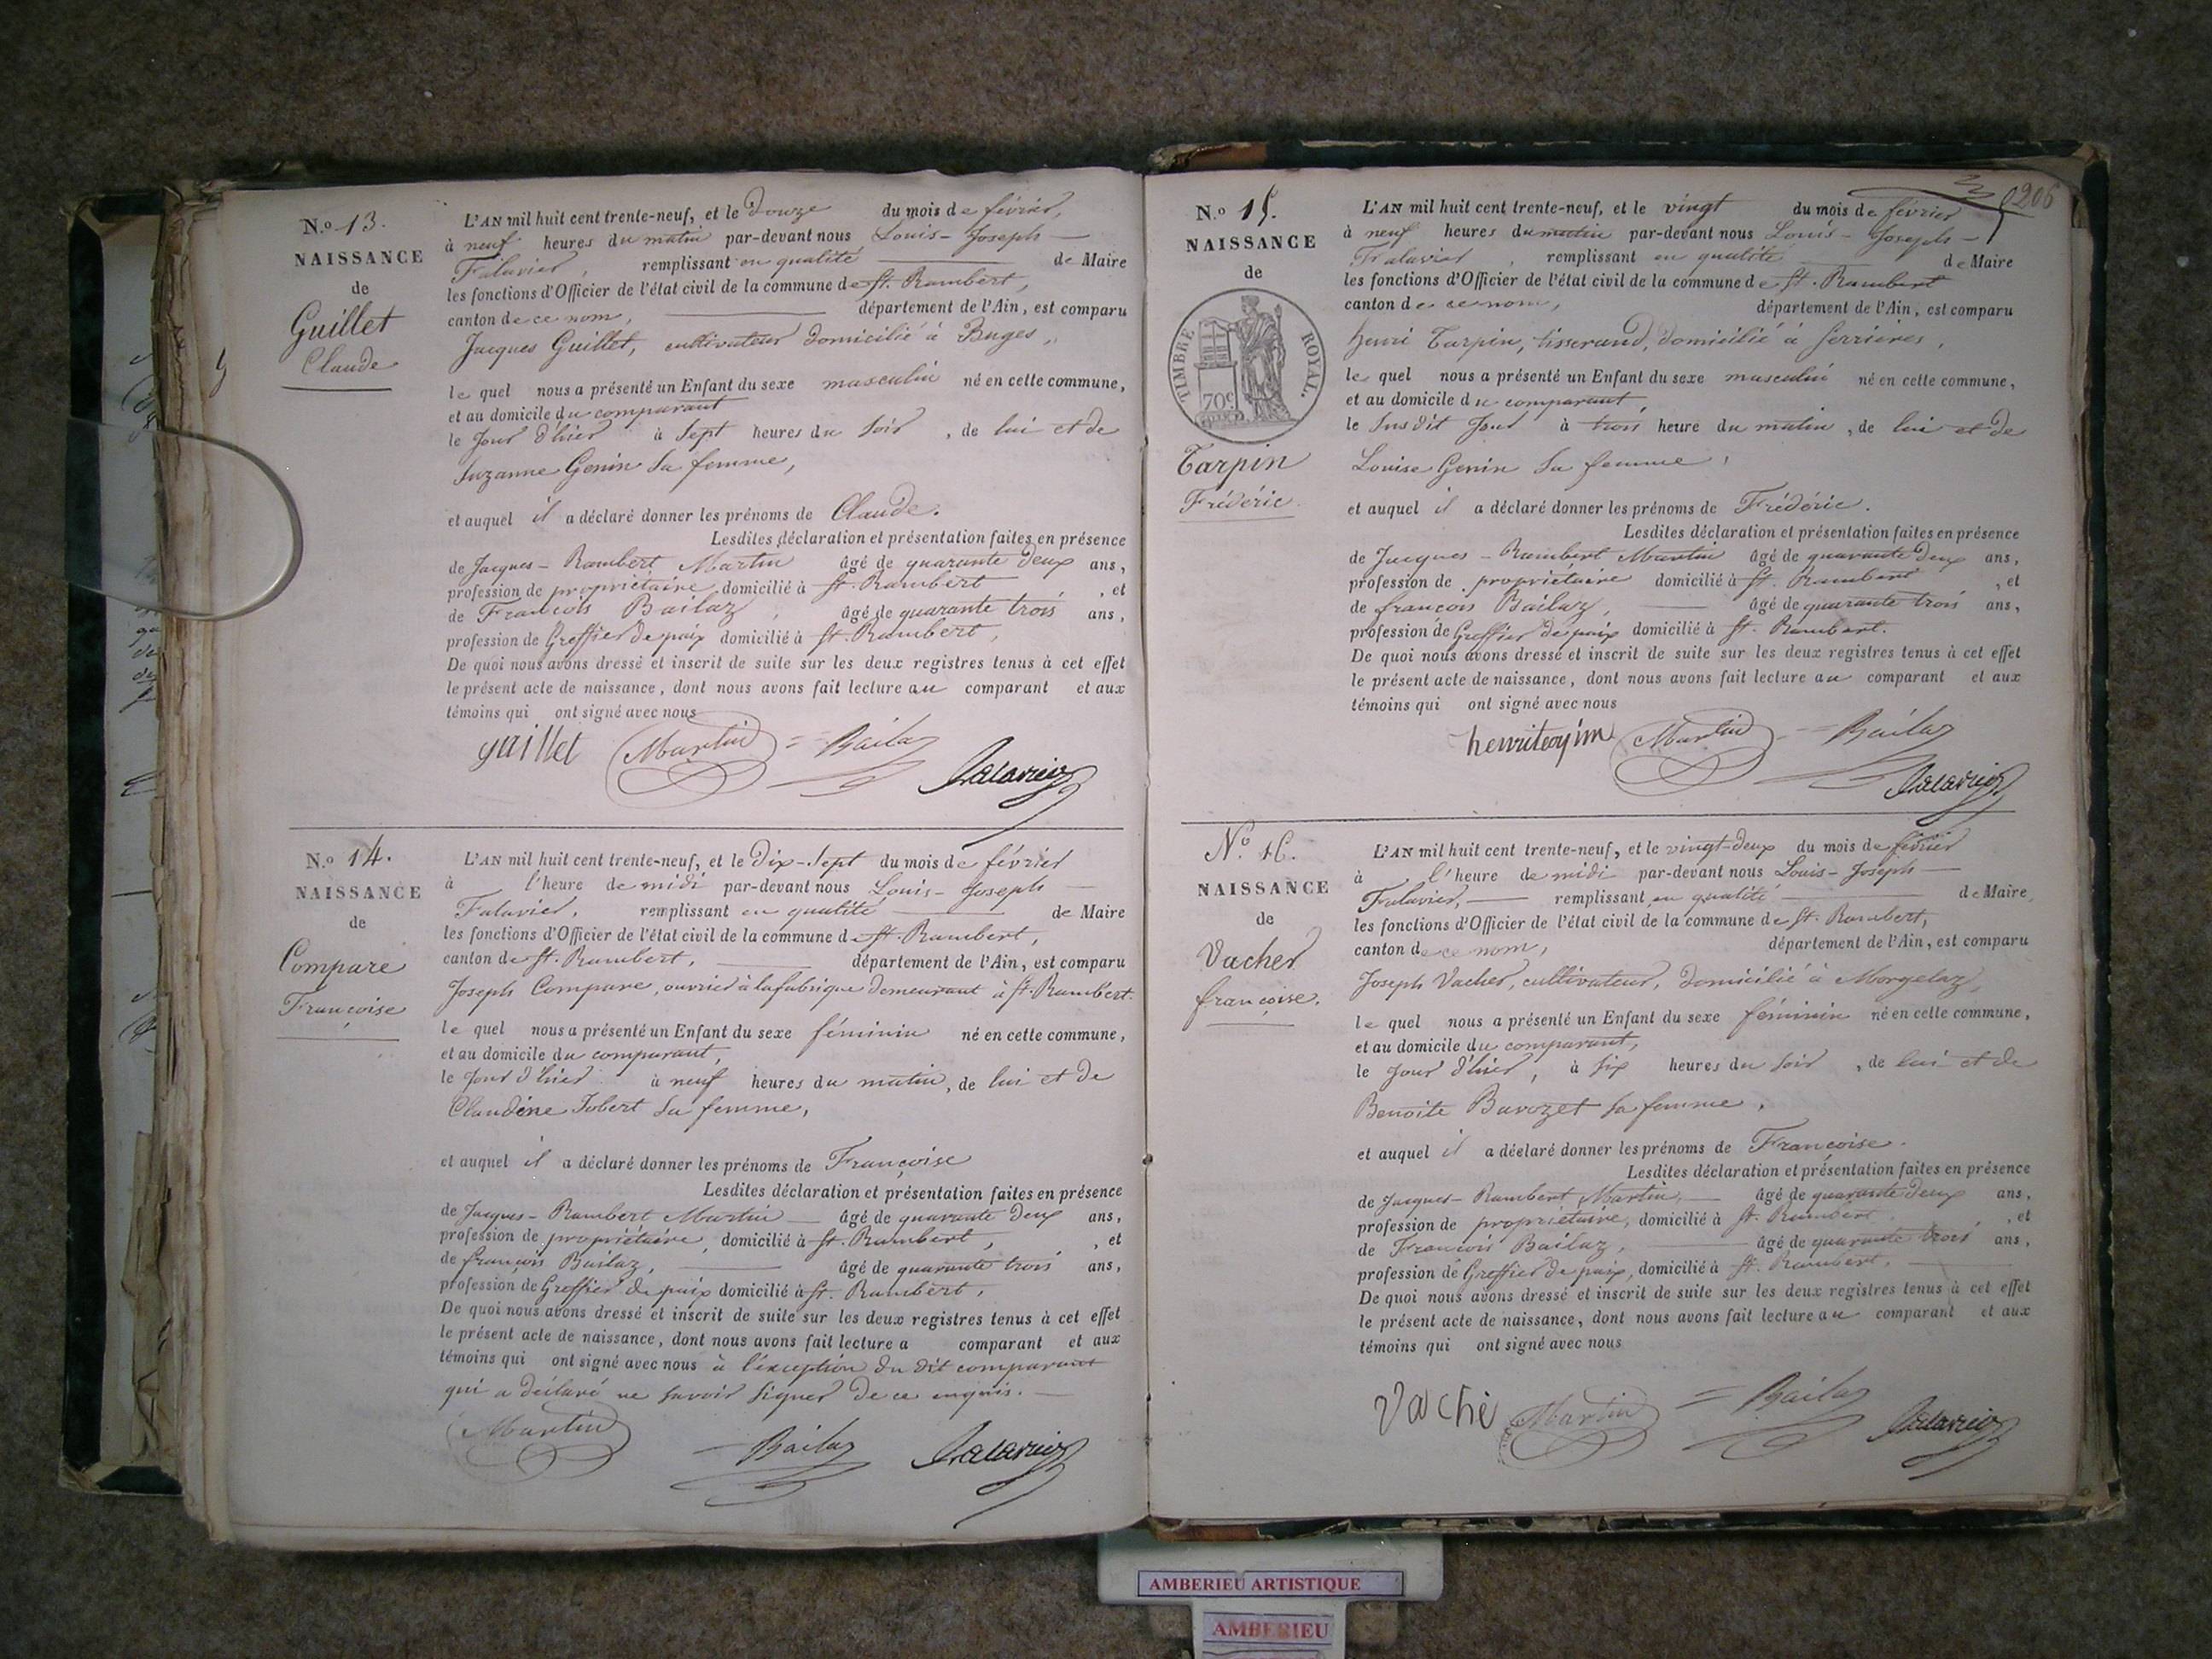 N.º 13.
NAISSANCE
de
Guillet
Claude
L'AN mil huit cent trente-neuf, et le douze du mois de février,
à neuf heures du matin par-devant nous Louis-Joseph
Falavier, remplissant en qualité de Maire
les fonctions d'Officier de l'état civil de la commune de St. Rambert,
canton de ce nom, département de l'Ain, est comparu
Jacques Guillet, cultivateur domicilié à Buges,
le quel nous a présenté un Enfant du sexe masculin né en cette commune,
et au domicile du comparant
le jour d'hier à sept heures du soir, de lui et de
Suzanne Genin sa femme,
et auquel il a déclaré donner les prénoms de Claude.
Lesdites déclaration et présentation faites en présence
de Jacques-Rambert Martin âgé de quarante deux ans,
profession de propriétaire domicilié à St. Rambert, et
de François Bailaz, âgé de quarante trois ans,
profession de Greffier de paix domicilié à St. Rambert,
De quoi nous avons dressé et inscrit de suite sur les deux registres tenus à cet effet
le présent acte de naissance, dont nous avons fait lecture au comparant et aux
témoins qui ont signé avec nous
guillet Martin Bailaz
Falavier
N.º 14.
NAISSANCE
de
Compare
Françoise
L'AN mil huit cent trente-neuf, et le dix-sept du mois de février
à l'heure de midi par-devant nous Louis-Joseph
Falavier, remplissant en qualité de Maire
les fonctions d'Officier de l'état civil de la commune de St. Rambert,
canton de St. Rambert, département de l'Ain, est comparu
Joseph Compare, ouvrier à la fabrique demeurant à St. Rambert.
le quel nous a présenté un Enfant du sexe féminin né en cette commune,
et au domicile du comparant,
le jour d'hier à neuf heures du matin, de lui et de
Claudine Jobert sa femme,
et auquel il a déclaré donner les prénoms de Françoise
Lesdites déclaration et présentation faites en présence
de Jacques-Rambert Martin âgé de quarante deux ans,
profession de propriétaire, domicilié à St. Rambert, et
de françois Bailaz, âgé de quarante trois ans,
profession de Greffier de paix domicilié à St. Rambert,
De quoi nous avons dressé et inscrit de suite sur les deux registres tenus à cet effet
le présent acte de naissance, dont nous avons fait lecture a comparant et aux
témoins qui ont signé avec nous à l'exception du dit comparant
qui a déclaré ne savoir signer de ce enquis.
Martin Bailaz Falavier
0206
N.º 15.
NAISSANCE
de
TIMBRE ROYAL.
70c
Tarpin
Frédéric
L'AN mil huit cent trente-neuf, et le vingt du mois de février
à neuf heures du matin par-devant nous Louis-Joseph
Falavier, remplissant en qualité de Maire
les fonctions d'Officier de l'état civil de la commune de St. Rambert
canton de ce nom, département de l'Ain, est comparu
henri Tarpin, tisserand, domicilié à serrières,
le quel nous a présenté un Enfant du sexe masculin né en cette commune,
et au domicile du comparant,
le susdit jour à trois heure du matin, de lui et de
Louise Genin sa femme,
et auquel il a déclaré donner les prénoms de Frédéric.
Lesdites déclaration et présentation faites en présence
de Jacques-Rambert Martin âgé de quarante deux ans,
profession de propriétaire domicilié à St. Rambert, et
de françois Bailaz, âgé de quarante trois ans,
profession de Greffier de paix domicilié à St. Rambert.
De quoi nous avons dressé et inscrit de suite sur les deux registres tenus à cet effet
le présent acte de naissance, dont nous avons fait lecture au comparant et aux
témoins qui ont signé avec nous
Martin Bailaz
Falavier
N.º 16.
NAISSANCE
de
Vacher
françoise.
L'AN mil huit cent trente-neuf, et le vingt-deux du mois de février
à l'heure de midi par-devant nous Louis-Joseph
Falavier, remplissant en qualité de Maire
les fonctions d'Officier de l'état civil de la commune de St. Rambert,
canton de ce nom, département de l'Ain, est comparu
Joseph Vacher, cultivateur, domicilié à Morgelaz,
le quel nous a présenté un Enfant du sexe féminin né en cette commune,
et au domicile du comparant,
le jour d'hier, à six heures du soir, de lui et de
Benoite Bavozet sa femme,
et auquel il a déclaré donner les prénoms de Françoise.
Lesdites déclaration et présentation faites en présence
de Jacques-Rambert Martin, âgé de quarante deux ans,
profession de propriétaire, domicilié à St. Rambert, et
de François Bailaz, âgé de quarante trois ans,
profession de Greffier de paix, domicilié à St. Rambert,
De quoi nous avons dressé et inscrit de suite sur les deux registres tenus à cet effet
le présent acte de naissance, dont nous avons fait lecture au comparant et aux
témoins qui ont signé avec nous
Vache Martin Bailaz Falavier
AMBERIEU ARTISTIQUE
AMBERIEU